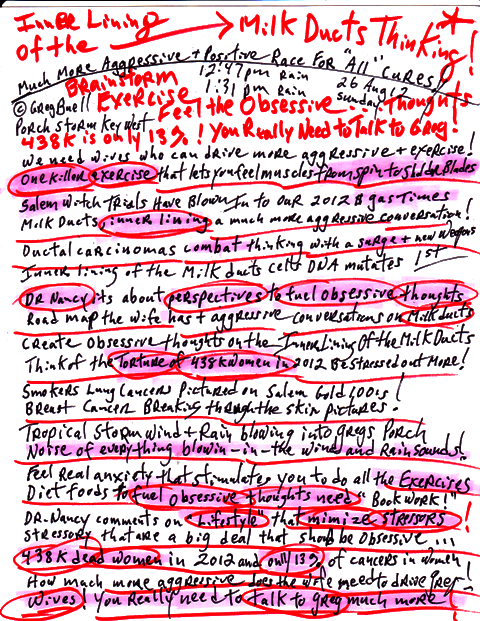 Inner Lining
of the → Milk Ducts Thinking!
Much More Aggressive + Positive Race For "All" Cures!
Brainstorm 12:47pm Rain 26 Aug 12
© Greg Buell Exercise 1:31pm Rain Sunday
Porch Storm Key West Feel the Obsessive Thoughts
438K is only 13%! You Really Need to Talk to Greg!
We need wives who can drive more aggressive + exercise!
One killer exercise that lets you feel muscles from spin to shldr Blades
Salem Witch Trials Have Blown In to our 2012 8 gas Times
Milk Ducts, inner lining a much more aggressive conversation!
Ductal carcinomas combat thinking with a surge + new weapons
Inner lining of the Milk ducts cells DNA mutates 1st
DR Nancy its about perspectives to fuel obsessive thoughts
Road map the wife has + aggressive conversations on Milk ducts
Create obsessive thoughts on the Inner Lining Of the Milk Ducts
Think of the Torture of 438K Women in 2012 Be stressed out More!
Smokers Lung Cancers Pictured on Salem Gold 100s!
Breast Cancer Breaking through the skin pictures.
Tropical Storm Wind + Rain blowing into Gregs Porch
Noise of everything blowin-in-the wind and Rain sounds!
Feel Real anxiety that stimulates you to do all the Exercises
Diet foods to fuel obsessive thoughts need "Book work!"
DR-Nancy comments on "Lifestyle" that mimize stressors!
Stressors that are a big deal that should be Obsessive...
438K dead women in 2012 and only 13% of cancers in women
How much more aggressive does the wife need to drive Greg
Wives! You Really need to talk to greg much more!